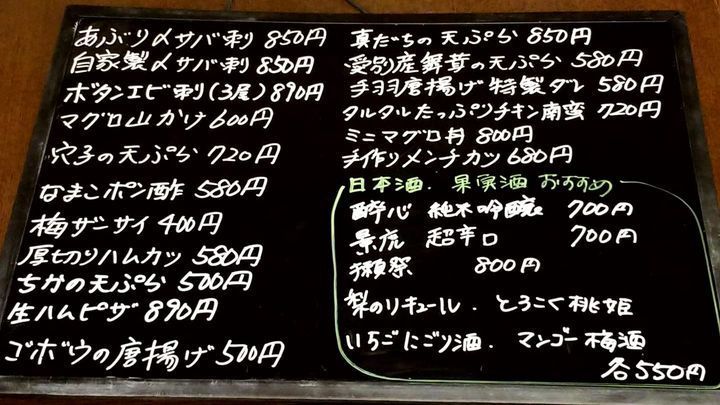 あぶり〆サバ刺 850円
自家製〆サバ刺 850円
ボタンエビ刺(3尾) 890円
マグロ山かけ 600円
穴子の天ぷら 720円
なまこポン酢 580円
梅ザーサイ 400円
厚切りハムカツ 580円
ちかの天ぷら 500円
生ハムピザ 890円
ゴボウの唐揚げ 500円
真だちの天ぷら 850円
愛別産舞茸の天ぷら 580円
手羽唐揚げ特製ダレ 580円
タルタルたっぷりチキン南蛮 720円
ミニマグロ丼 800円
手作りメンチカツ 680円
日本酒.果実酒おすすめ
酔心 純米吟醸 700円
景虎 超辛口 700円
獺祭 800円
梨のリキュール.とろこく桃姫
いちごにごり酒.マンゴー梅酒
各550円